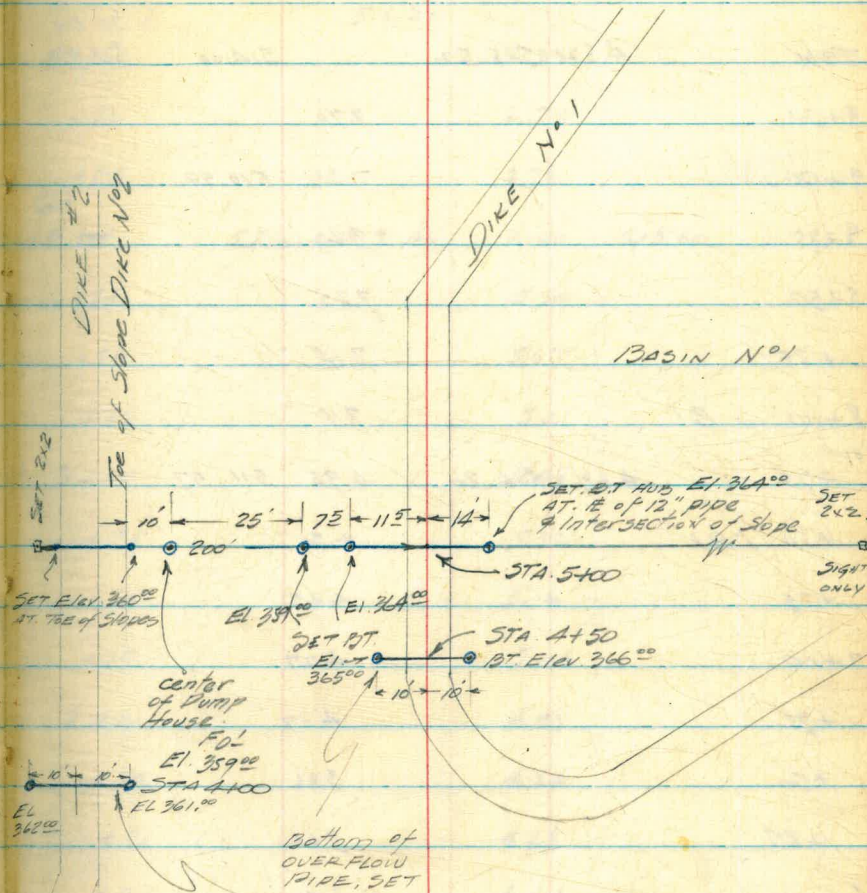 DIKE Nº 1
DIKE #2
Toe of Slope DIKE Nº2
BASIN Nº1
SET 2x2
10' 25' 7⁵ 11⁵ 14'
200'
SET. B.T HUB El. 364⁰⁰
AT. ℄ of 12" pipe
& Intersection of Slope
SET
2x2
SIGHT
ONLY
STA. 5+00
SET Elev. 360⁰⁰
AT. TOE of Slopes
El. 359⁰⁰
El. 364⁰⁰
SET B.T.
El.
365⁰⁰
STA. 4+50
B.T. Elev 366⁰⁰
10' 10'
center
of Pump
House.
El. 359⁰⁰
10' 10'
STA 4+00
EL 361.⁰⁰
EL
362⁰⁰
Bottom of
OVERFLOW
PIPE, SET